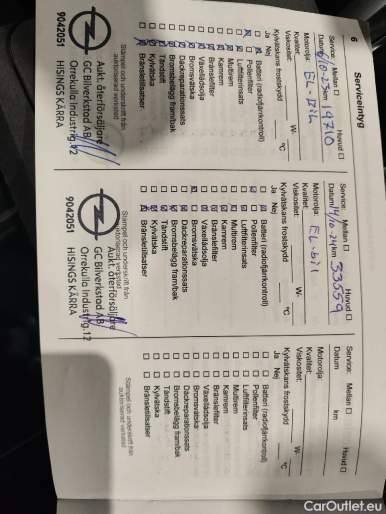 6 Serviceintyg
Service: Mellan Huvud
Datum 6/10-23 km 19710
Motorolja: EL-Bil
Kvalitet:
Viskositet: W-
Kylvätskans fryskydd °C
Ja Nej
Batteri (radiofjärrkontroll)
Pollenfilter
Luftfilterinsats
Multirem
Kamrem
Bränslefilter
Växellådsolja
Bromsvätska
Däckreparationssats
Bromsbelägg fram/bak
Tändstift
Kylvätska
Bränsletillsatser
Stämpel och underskrift från auktoriserad verkstad
Aukt. återförsäljare
GC Bilverkstad AB
Orrekulla Industrig.12
9042051 HISINGS KÄRRA
Service: Mellan Huvud
Datum 14/10-24 km 33559
Motorolja: EL-bil
Kvalitet:
Viskositet: W-
Kylvätskans fryskydd °C
Ja Nej
Batteri (radiofjärrkontroll)
Pollenfilter
Luftfilterinsats
Multirem
Kamrem
Bränslefilter
Växellådsolja
Bromsvätska
Däckreparationssats
Bromsbelägg fram/bak
Tändstift
Kylvätska
Bränsletillsatser
Stämpel och underskrift från auktoriserad verkstad
Aukt. återförsäljare
GC Bilverkstad AB
Orrekulla Industrig.12
9042051 HISINGS KÄRRA
Service: Mellan Huvud
Datum km
Motorolja:
Kvalitet:
Viskositet: W-
Kylvätskans fryskydd °C
Ja Nej
Batteri (radiofjärrkontroll)
Pollenfilter
Luftfilterinsats
Multirem
Kamrem
Bränslefilter
Växellådsolja
Bromsvätska
Däckreparationssats
Bromsbelägg fram/bak
Tändstift
Kylvätska
Bränsletillsatser
Stämpel och underskrift från auktoriserad verkstad
CarOutlet.eu